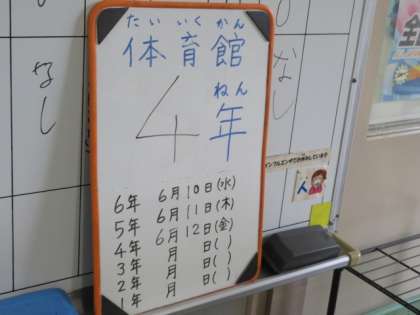 たいいくかん
体育館
4年
ねん
6年 6月10日(水)
5年 6月11日(木)
4年 6月12日(金)
3年 月 日( )
2年 月 日( )
1年 月 日( )
なし
なし